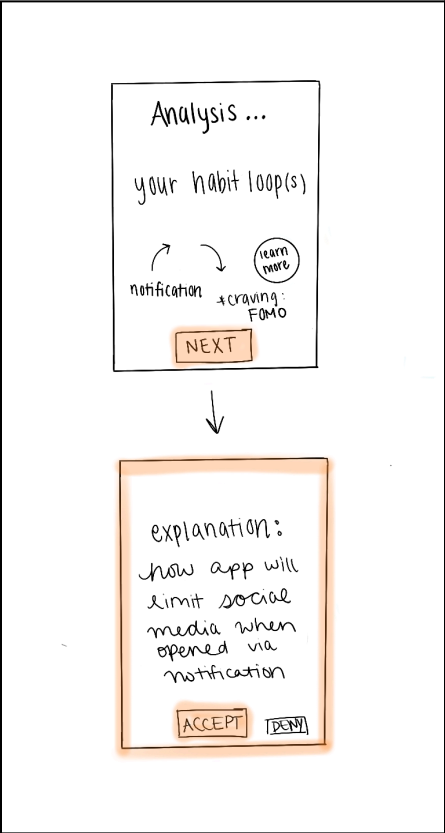 Analysis...
your habit loop(s)
learn
more
notification
*craving:
FOMO
NEXT
explanation:
how app will
limit social
media when
opened via
notification
ACCEPT
DENY